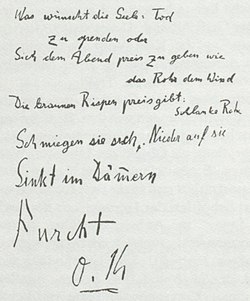 Was wünscht die Seele: Tod
zu spenden oder
Sich dem Abend preis zu geben wie
das Rohr dem Wind
Die braunen Rispen preisgibt:
schlanke Rohr
Schmiegen sie sich, Nieder auf sie
Sinkt im Dämern
Furcht
O. K